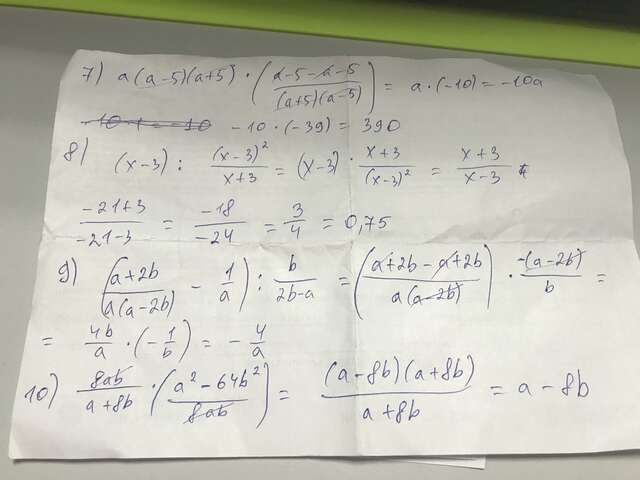 7) a(a-5)(a+5) · (a-5-a-5 / (a+5)(a-5)) = a·(-10) = -10a
-10 · (-39) = 390
8) (x-3) : (x-3)² / x+3 = (x-3) · x+3 / (x-3)² = x+3 / x-3
-21+3 / -21-3 = -18 / -24 = 3/4 = 0,75
9) (a+2b / a(a-2b) - 1/a) : b / 2b-a = (a+2b-a+2b / a(a-2b)) · -(a-2b) / b =
= 4b/a · (-1/b) = -4/a
10) 8ab / a+8b (a²-64b² / 8ab) = (a-8b)(a+8b) / a+8b = a-8b